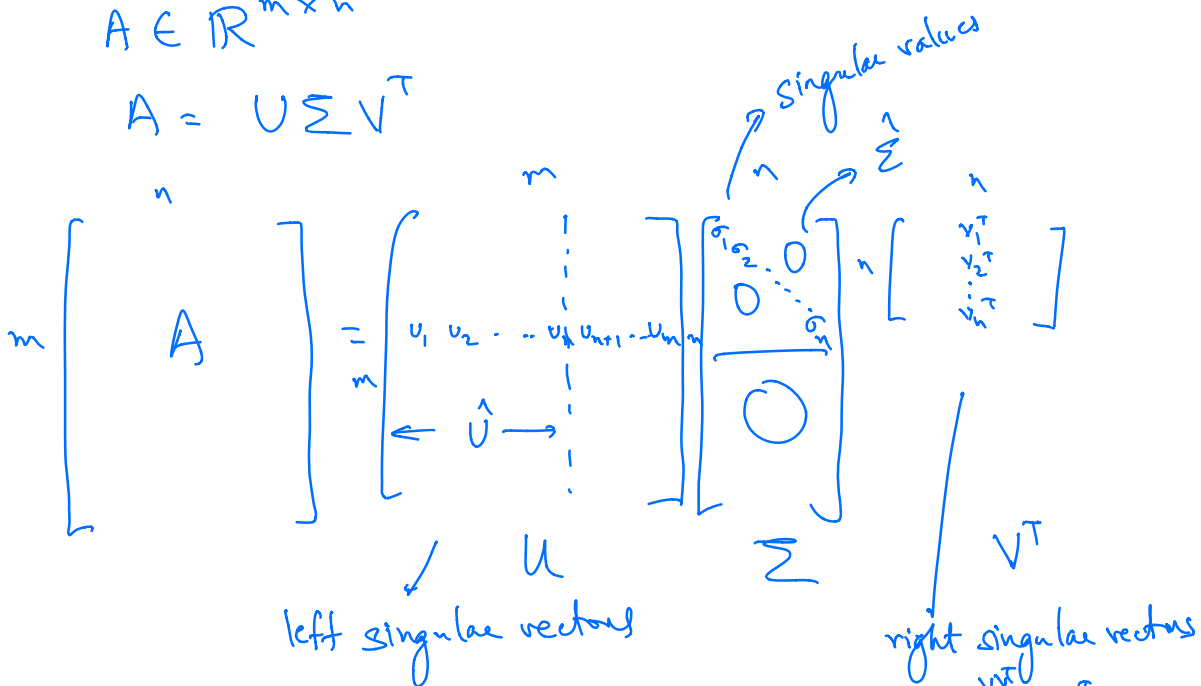 A ∈ ℝ^{m×n}
singular values
A = U Σ V^T
Σ̂
n m n n
m [ A ] = m [ u₁ u₂ · ·· uₙ uₙ₊₁ ·· uₘ ] n [ σ₁ σ₂ ⋱ σₙ 0 0 0 ] n [ v₁^T v₂^T ⋮ vₙ^T ]
← Û →
U Σ V^T
left singular vectors
right singular vectors